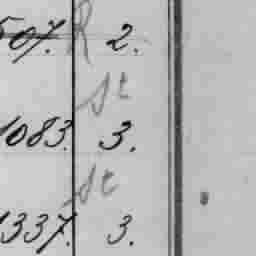 507. R 2.
St
1083. 3.
St
1337. 3.